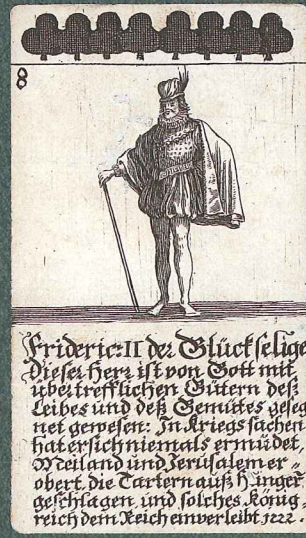 8
Frideric:II der Glückselige
Dieser Herr ist von Gott mit
übertrefflichen Gütern deß
Leibes und deß Gemütes geseg
net gewesen: In Kriegs sachen
hat er sich niemals ermüdet,
Meiland und Jerusalem er-
obert, die Tartern auß Hunger
geschlagen, und solches König-
reich dem Reich einverleibt 1222.